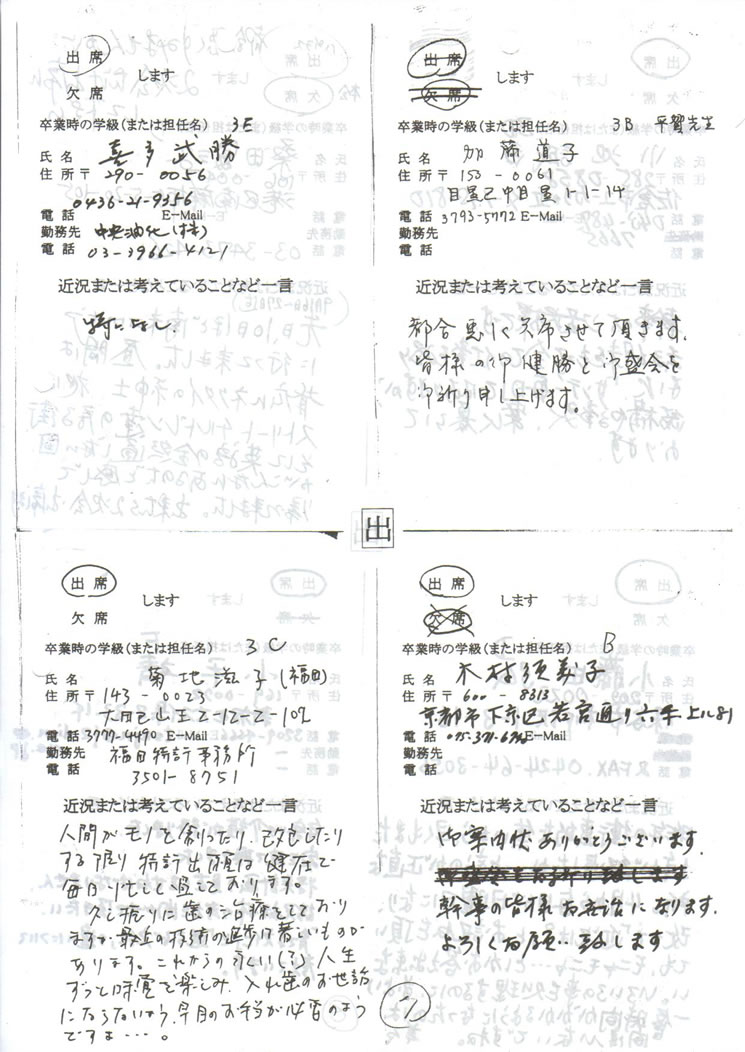 出席
します
欠席
卒業時の学級(または担任名) 3E
氏名 喜多武勝
住所〒 290-0056
0436-21-9356
電話 E-Mail
勤務先 中央油化(株)
電話 03-3966-4121
近況または考えていることなど一言
特になし.
出席
します
欠席
卒業時の学級(または担任名) 3B 平賀先生
氏名 加藤道子
住所〒 153-0061
目黒区中目黒1-1-14
電話 3793-5772 E-Mail
勤務先
電話
近況または考えていることなど一言
都合悪く欠席させて頂きます.
皆様の御健勝と御盛会を
御祈り申し上げます。
出
出席
します
欠席
卒業時の学級(または担任名) 3C
氏名 菊地滋子(福田)
住所〒 143-0023
大田区山王2-12-2-102
電話 3777-4490 E-Mail
勤務先 福田特許事務所
電話 3501-8751
近況または考えていることなど一言
人間がモノを創ったり、改良したり
する限り特許出願は健在で
毎日忙しく過しております。
久し振りに歯の治療をしており
ますが最近の技術の進歩は著しいものが
あります。これからの永い(?)人生
ずっと味覚を楽しみ、入れ歯のお世話
にならないよう、早目のお手当が必要のよう
ですよ・・・。
出席
します
欠席
卒業時の学級(または担任名) B
氏名 木村須美子
住所〒 600-8313
京都市下京区若宮通り六条上ル81
電話 E-Mail
勤務先
電話
近況または考えていることなど一言
御案内状ありがとうございます.
幹事の皆様お世話になります.
よろしくお願い致します